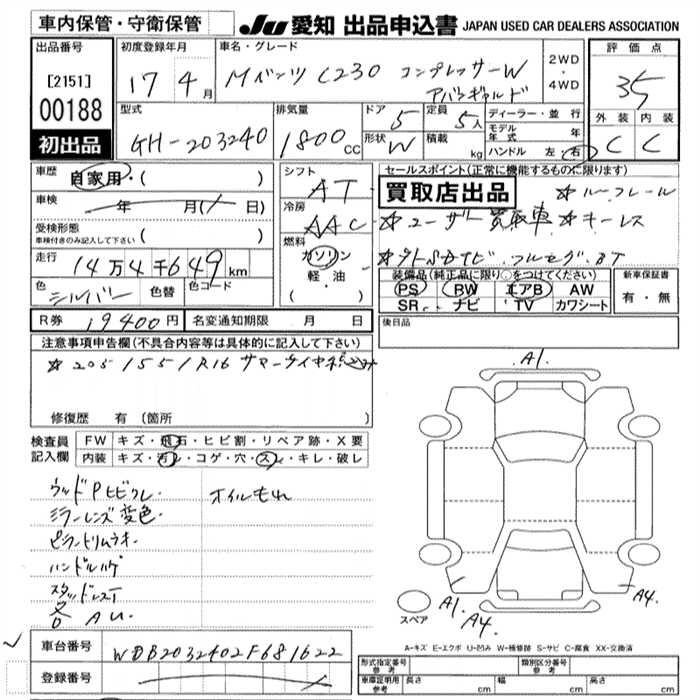 車内保管・守衛保管
JU 愛知 出品申込書 JAPAN USED CAR DEALERS ASSOCIATION
出品番号
[2151]
00188
初出品
初度登録年月
17 4月
車名・グレード
Mベンツ C230 コンプレッサーW
アバンギャルド
2WD
・
4WD
評価点
35
外装 内装
C C
型式
GH-203240
排気量
1800cc
ドア 5
形状 W
定員 5人
積載 kg
ディーラー・並行
モデル年式 年
ハンドル 左・右
車歴
自家用・( )
車検
年 月( 日)
受検形態
車検付きのみ記入して下さい ( )
走行
14万4千649km
色
シルバー
色替
色コード
シフト
AT
冷房
AAC
燃料
ガソリン
軽・油
( )
セールスポイント(正常に機能するものに限ります)
買取店出品
☆ルーフレール
☆ユーザー買取車 ☆キーレス
☆外SDナビ フルセグ BT
装備品(純正品に限り○をつけてください)
PS BW エアB AW
SR ナビ TV カワシート
新車保証書
有・無
R券 19400円
名変通知期限 月 日
後日品
注意事項申告欄(不具合内容等は具体的に記入して下さい)
☆205/55/R16 サマータイヤ積込み
修復歴 有 (箇所
検査員
記入欄
FW キズ・飛石・ヒビ割・リペア跡・X要
内装 キズ・汚レ・コゲ・穴・スレ・キレ・破レ
ウッドPヒビワレ オイルもれ
ミラーレンズ変色
ピラートリムウキ
ハンドルハゲ
スタッドレスT
各AU
A1
A1
A4
A4
スペア
A-キズ E-エクボ U-凹み W-補修跡 S-サビ C-腐食 XX-交換済
車台番号
WDB2032402F681622
登録番号
形式指定番号
参考
類別区分番号
参考
車庫証明用
参考
長さ cm
幅 cm
高さ cm